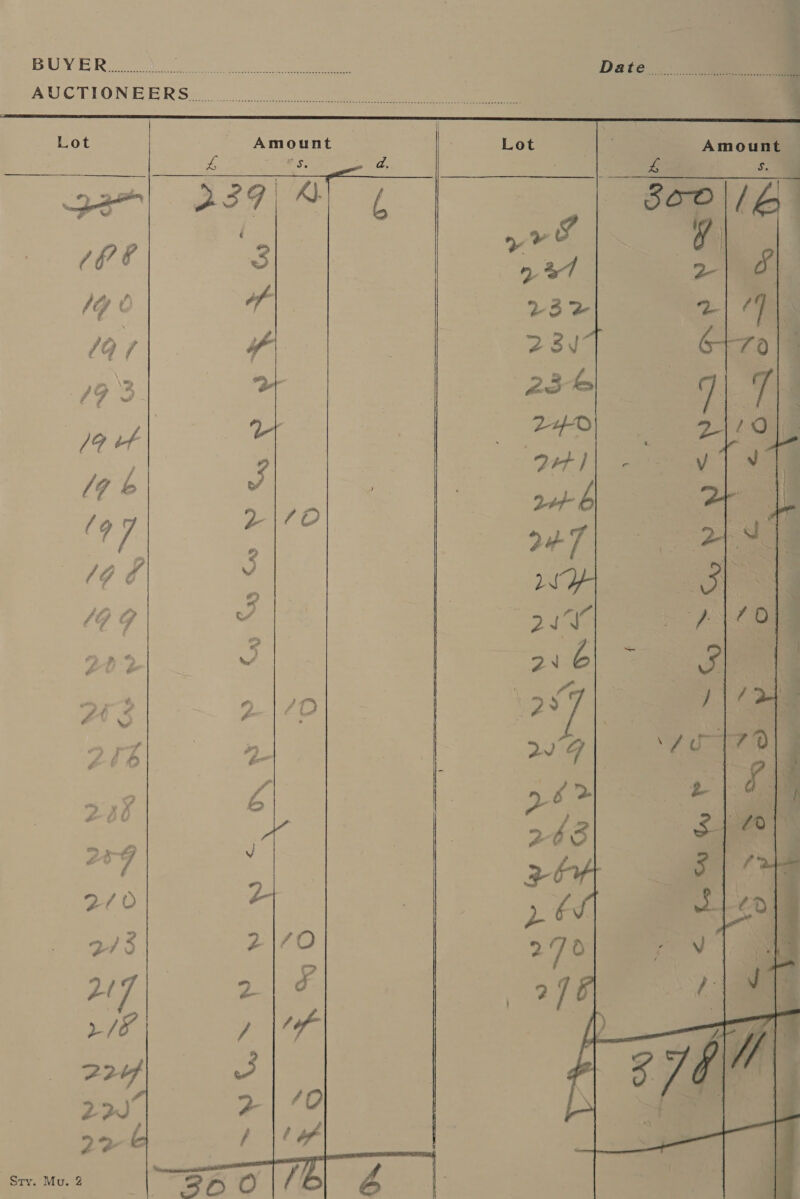 BUYER Date
AUCTIONEERS
Lot Amount Lot Amount
£ s. d. £ s.
239 6 300 16
188 3 228 8
190 4 231 2 8
191 4 232 2 9
193 2 235 6 10
194 2 236 7 7
196 3 240 2 10
197 2 10 241 5 5
198 3 246 2
199 3 247 2 5
202 3 254 3
203 2 10 255 1 10
206 2 256 3
208 6 257 1 12
209 5 259 10 10
210 2 262 2 8
213 2 10 263 3 10
217 2 8 264 3 12
218 1 14 265 3 10
224 3 270 5
225 2 10 278 1 5
226 1 14 £ 378 11
300 16 6
Sty. Mu. 2